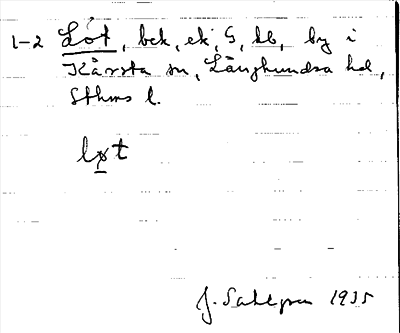 1-2 Löt, bck, ek, G, bb, by i
Kårsta sn, Långhundra hd,
Sthms l.
løt
J. Sahlgren 1935